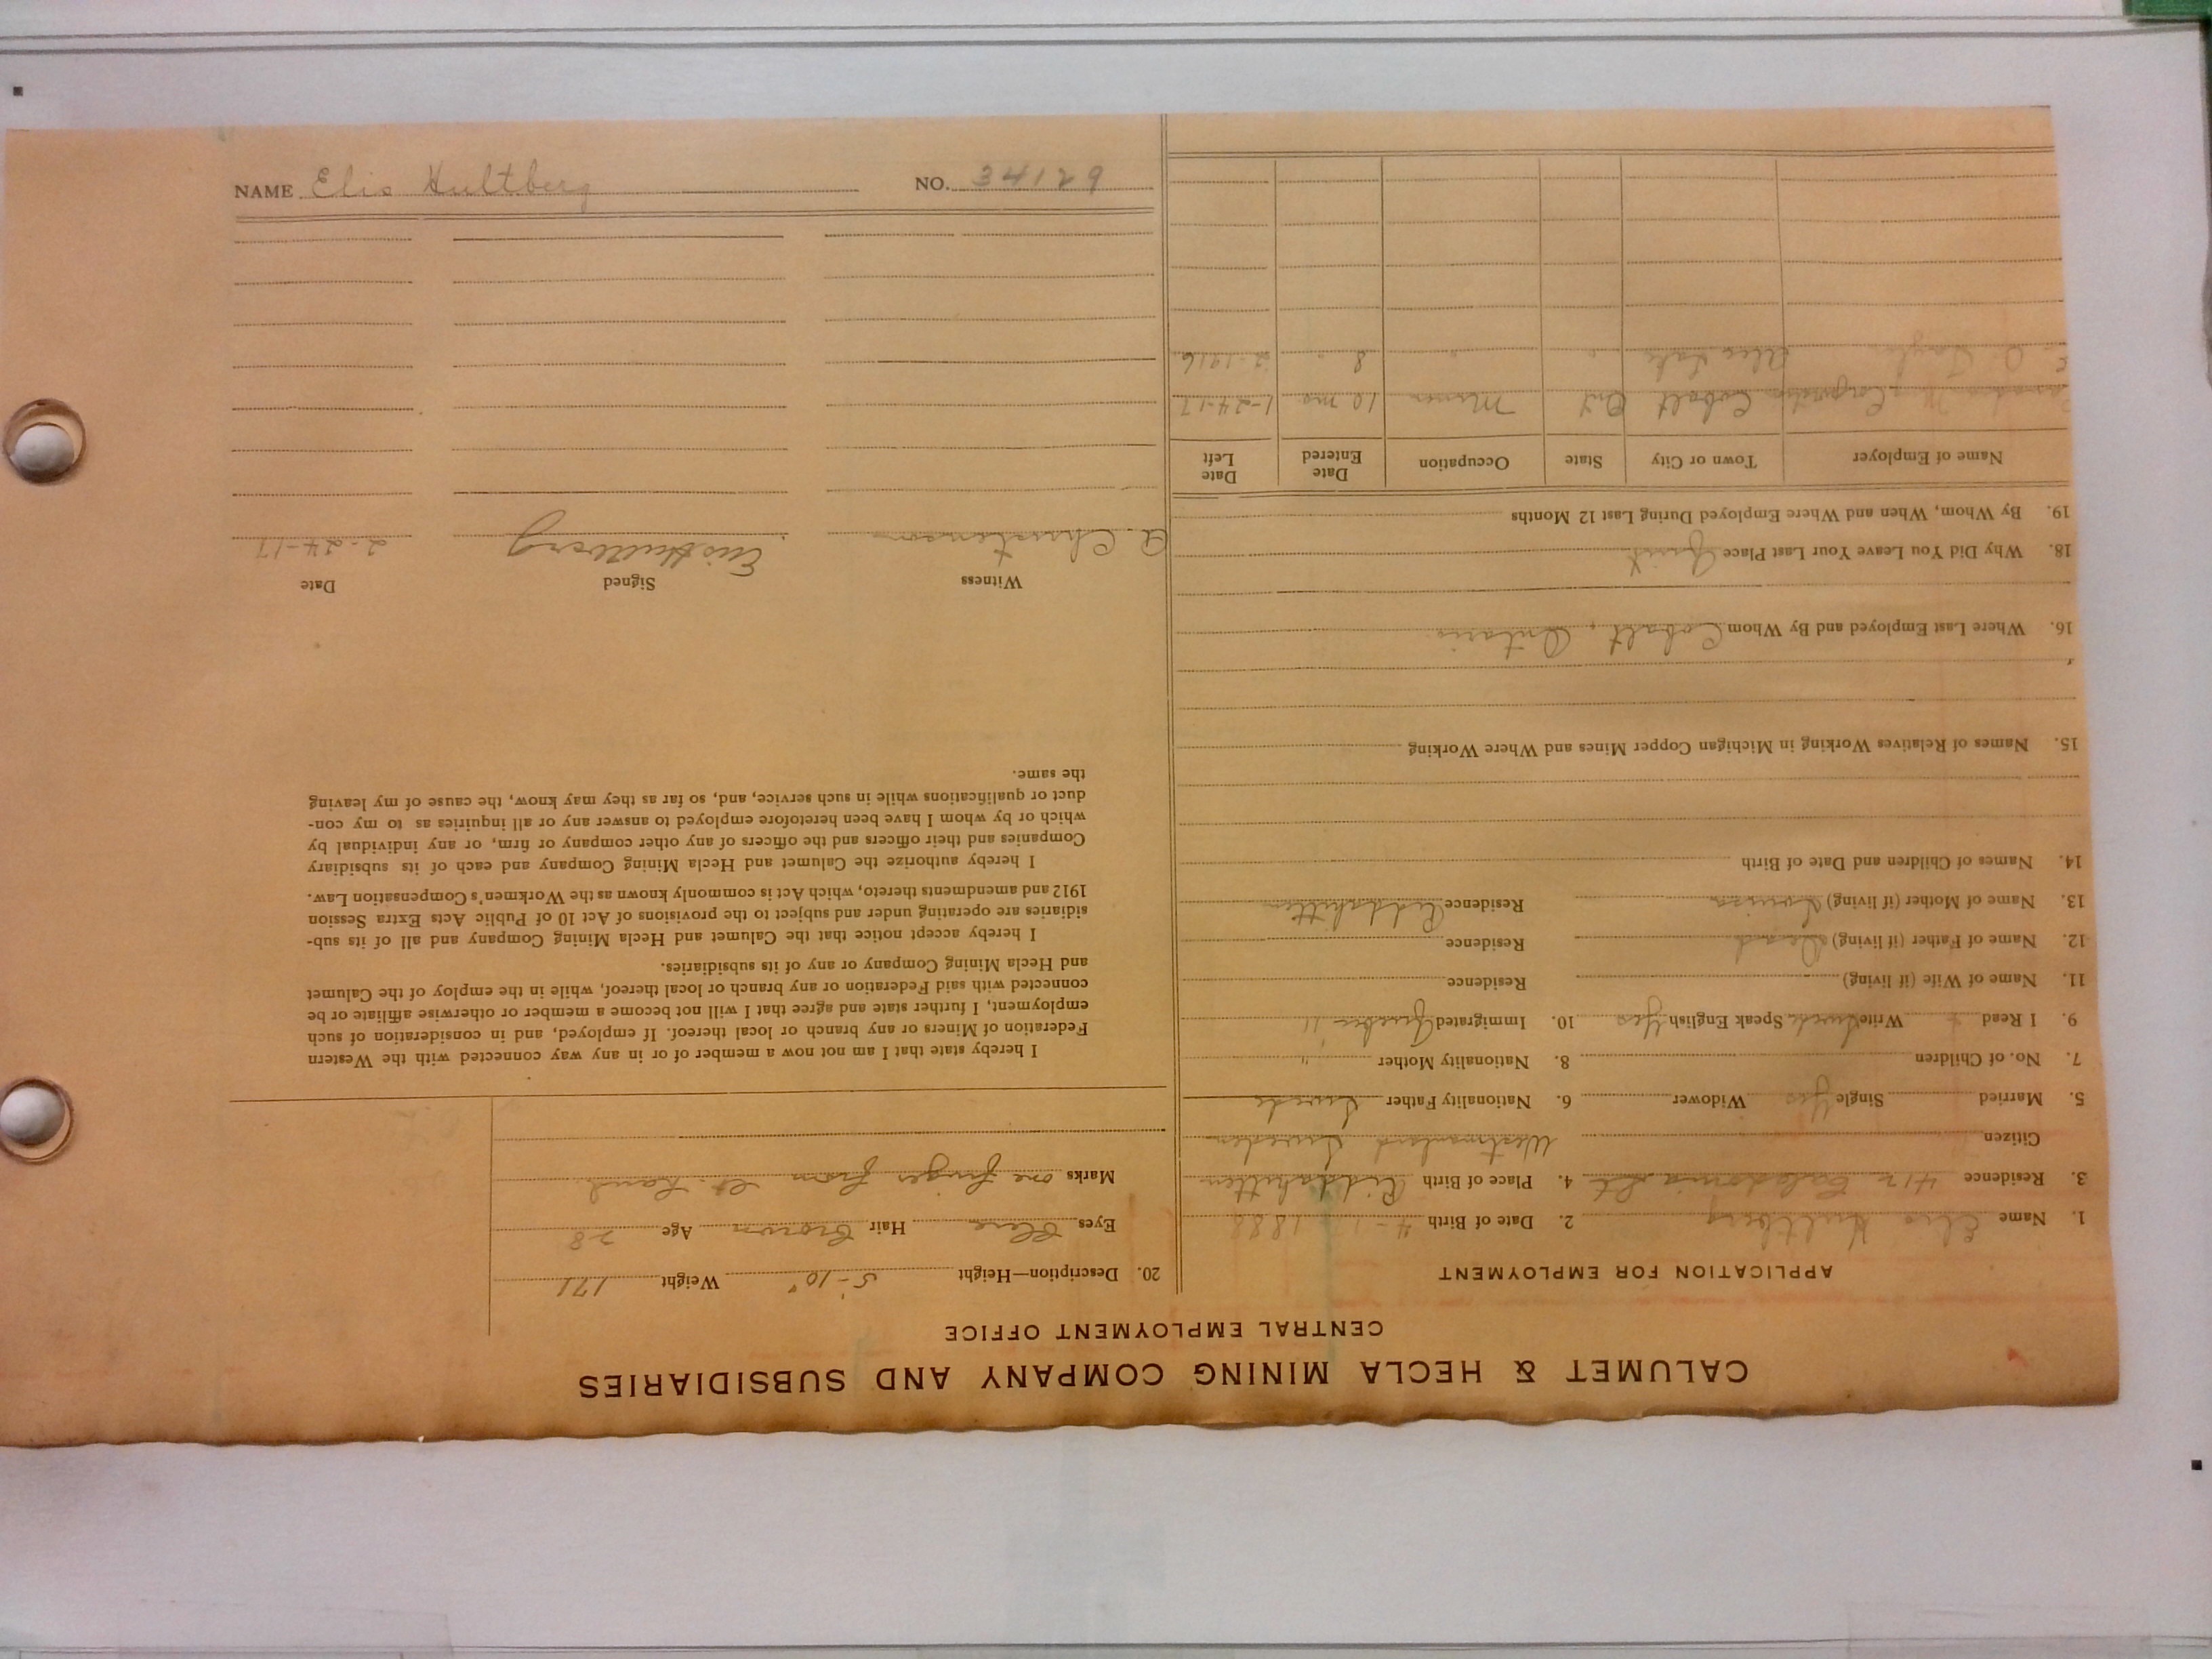 CALUMET & HECLA MINING COMPANY AND SUBSIDIARIES
CENTRAL EMPLOYMENT OFFICE
APPLICATION FOR EMPLOYMENT
1. Name Elis Hultberg 2. Date of Birth 4-1-1888
3. Residence 412 Caledonia St 4. Place of Birth Riddahitten
Citizen Westmanland Sweden
5. Married Single Yes Widower 6. Nationality Father Swede
7. No. of Children 8. Nationality Mother "
9. I Read Write Swede Speak English Yes 10. Immigrated Quebec 11
11. Name of Wife (if living) Residence
12. Name of Father (if living) Dead Residence
13. Name of Mother (if living) Lovisa Residence Riddahitten
14. Names of Children and Date of Birth
15. Names of Relatives Working in Michigan Copper Mines and Where Working
16. Where Last Employed and By Whom Cobalt, Ontario
18. Why Did You Leave Your Last Place Quit
19. By Whom, When and Where Employed During Last 12 Months
Name of Employer Town or City State Occupation Date Entered Date Left
Cobalt Ont Miner 10 mo 1-24-17
Lake " " 8 " 2-1916
20. Description—Height 5'-10" Weight 171
Eyes Blue Hair Brown Age 28
Marks one finger from lt. hand
I hereby state that I am not now a member of or in any way connected with the Western
Federation of Miners or any branch or local thereof. If employed, and in consideration of such
employment, I further state and agree that I will not become a member or otherwise affiliate or be
connected with said Federation or any branch or local thereof, while in the employ of the Calumet
and Hecla Mining Company or any of its subsidiaries.
I hereby accept notice that the Calumet and Hecla Mining Company and all of its sub-
sidiaries are operating under and subject to the provisions of Act 10 of Public Acts Extra Session
1912 and amendments thereto, which Act is commonly known as the Workmen's Compensation Law.
I hereby authorize the Calumet and Hecla Mining Company and each of its subsidiary
Companies and their officers and the officers of any other company or firm, or any individual by
which or by whom I have been heretofore employed to answer any or all inquiries as to my con-
duct or qualifications while in such service, and, so far as they may know, the cause of my leaving
the same.
Witness Signed Date
A. Christensen Elis Hultberg 2-24-17
NAME Elis Hultberg NO. 34129